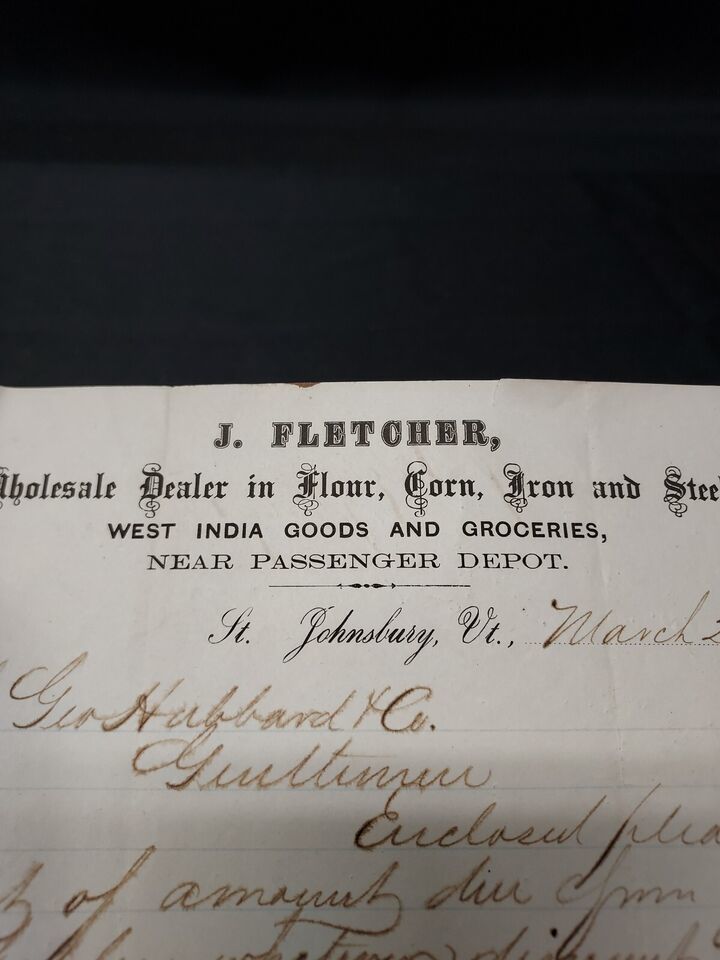 J. FLETCHER,
Wholesale Dealer in Flour, Corn, Iron and Steel
WEST INDIA GOODS AND GROCERIES,
NEAR PASSENGER DEPOT.
St. Johnsbury, Vt., March 2
Geo Hubbard & Co.
Gentlemen
Enclosed plea
of amount due from
whatever discount